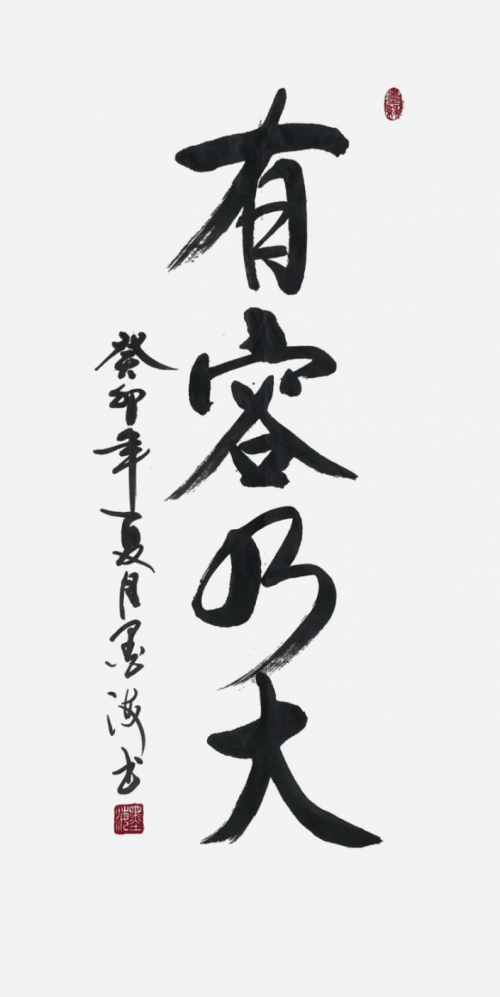 有容乃大
癸卯年夏月墨海书
墨海